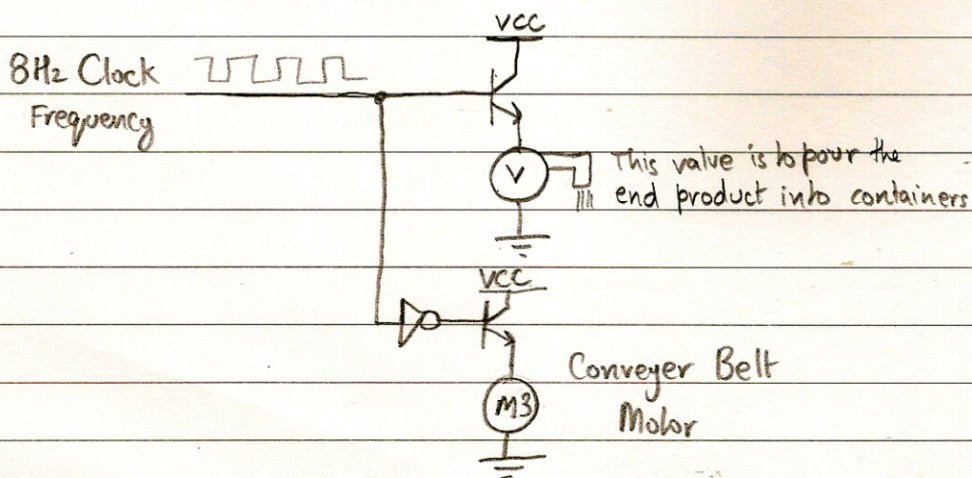 VCC
8Hz Clock
Frequency
V
This value is to pour the
end product into containers
VCC
M3
Conveyer Belt
Motor